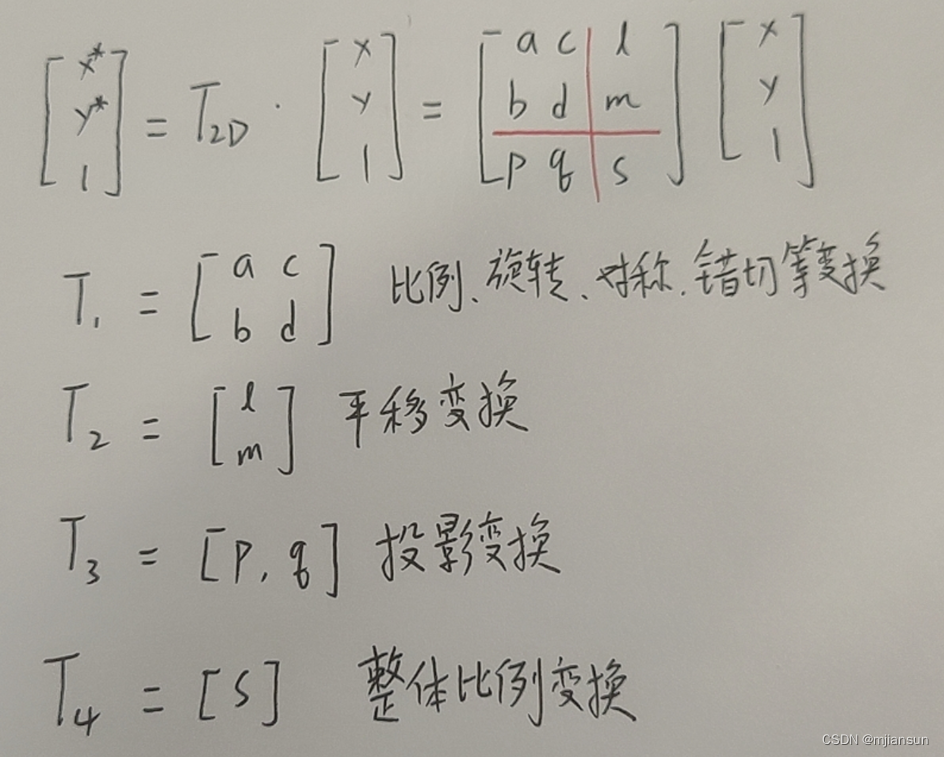 [x* y* 1] = T2D · [x y 1] = [a c l b d m p q s] [x y 1]
T1 = [a c b d] 比例、旋转、对称、错切等变换
T2 = [l m] 平移变换
T3 = [p, q] 投影变换
T4 = [s] 整体比例变换
CSDN @mjiansun